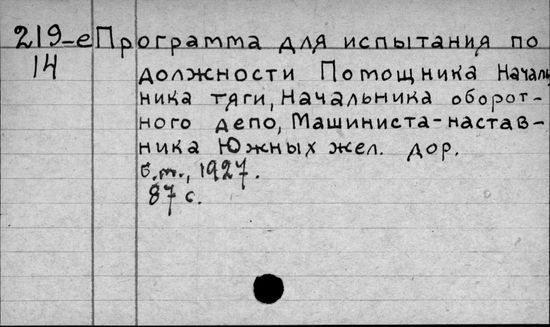 219-е Программа для испытания по
14 должности Помощника Началь
ника тяги, Начальника оборот-
ного депо, Машиниста-настав-
ника Южных жел. дор.
б.т., 1927.
87 с.